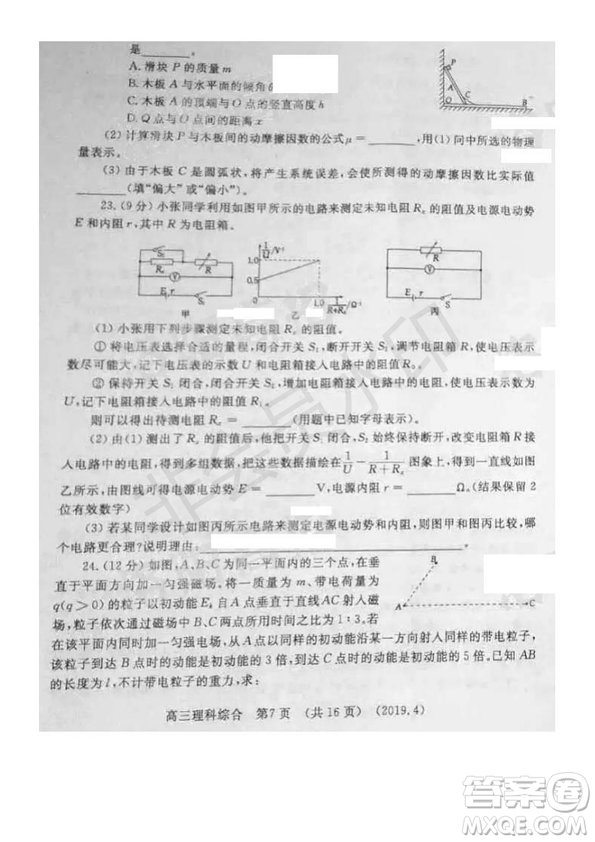 是______。
A. 滑块 P 的质量 m
B. 木板 A 与水平面的倾角
C. 木板 A 的顶端与 O 点的竖直高度 h
D. Q 点与 O 点间的距离 x
P
A
O
C
B
(2) 计算滑块 P 与木板间的动摩擦因数的公式 μ = ______,用(1)问中所选的物理
量表示。
(3) 由于木板 C 是圆弧状,将产生系统误差,会使所测得的动摩擦因数比实际值
______(填“偏大”或“偏小”)。
23. (9 分) 小张同学利用如图甲所示的电路来测定未知电阻 Rx 的阻值及电源电动势
E 和内阻 r,其中 R 为电阻箱。
S2
Rx
R
V
E r
S1
甲
1/U /V⁻¹
1.0
0.5
0
1.0
1/(R+Rx) /Ω⁻¹
乙
R
V
E r
S
丙
(1) 小张用下列步骤测定未知电阻 Rx 的阻值。
① 将电压表选择合适的量程,闭合开关 S1,闭合开关 S2,调节电阻箱 R,使电压表示
数尽可能大,记下电压表示数和电阻箱接入电路中的电阻。
② 保持开关 S1 闭合,断开开关 S2,增加电阻箱接入电路中的电阻,使电压表的示数为
U,记下电阻箱接入电路中的电阻。
则可以得出待测电阻 Rx = ______(用题中已知字母表示)。
(2) 由(1)测出了 Rx 的阻值后,他把开关 S1 闭合,S2 始终保持断开,改变电阻箱 R 接
入电路中的电阻,得到多组数据,把这些数据描绘在 1/U - 1/(R+Rx) 图象上,得到一直线如图
乙所示,由图线可得电源电动势 E= ______V,电源内阻 r= ______Ω。(结果保留 2
位有效数字)
(3) 若某同学设计如图丙所示电路来测定电源电动势和内阻,则图甲和图丙比较,哪
个电路更合理?说明理由:______
24. (12 分) 如图所示,A、B、C 为同一平面内的三个点,在
垂直于平面方向加一匀强磁场,将一质量为 m、带电荷量为
q(q>0)的粒子以初动能 Ek 自 A 点垂直于直线 AC 射入磁
场,粒子依次通过磁场中 B、C 两点所用时间之比为 1:3。若
在该平面内同时加一匀强电场,从 A 点以同样的初动能沿某一方向射入同样的带电粒子,
该粒子到达 B 点时的动能是初动能的 3 倍,到达 C 点时的动能是初动能的 5 倍。已知 AB
的长度为 l,不计带电粒子的重力,求:
B
A
C
高三理科综合 第7页 (共16页) (2019.4)
非会员水印
答案圈
MXQE.COM